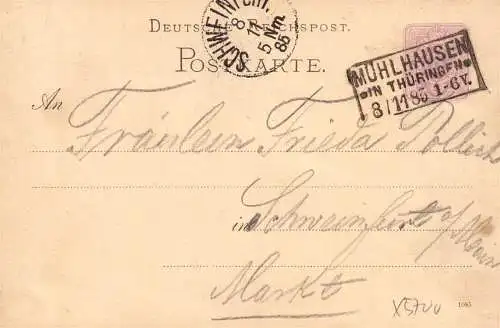 DEUTSCHE REICHSPOST.
POSTKARTE.
SCHWEINFURT.
8 11
5 Nm.
85
MÜHLHAUSEN
IN THÜRINGEN
8/11 85 1-6V.
An
Fräulein Frieda Pollich
in Schweinfurt a/Main
Markt
1085